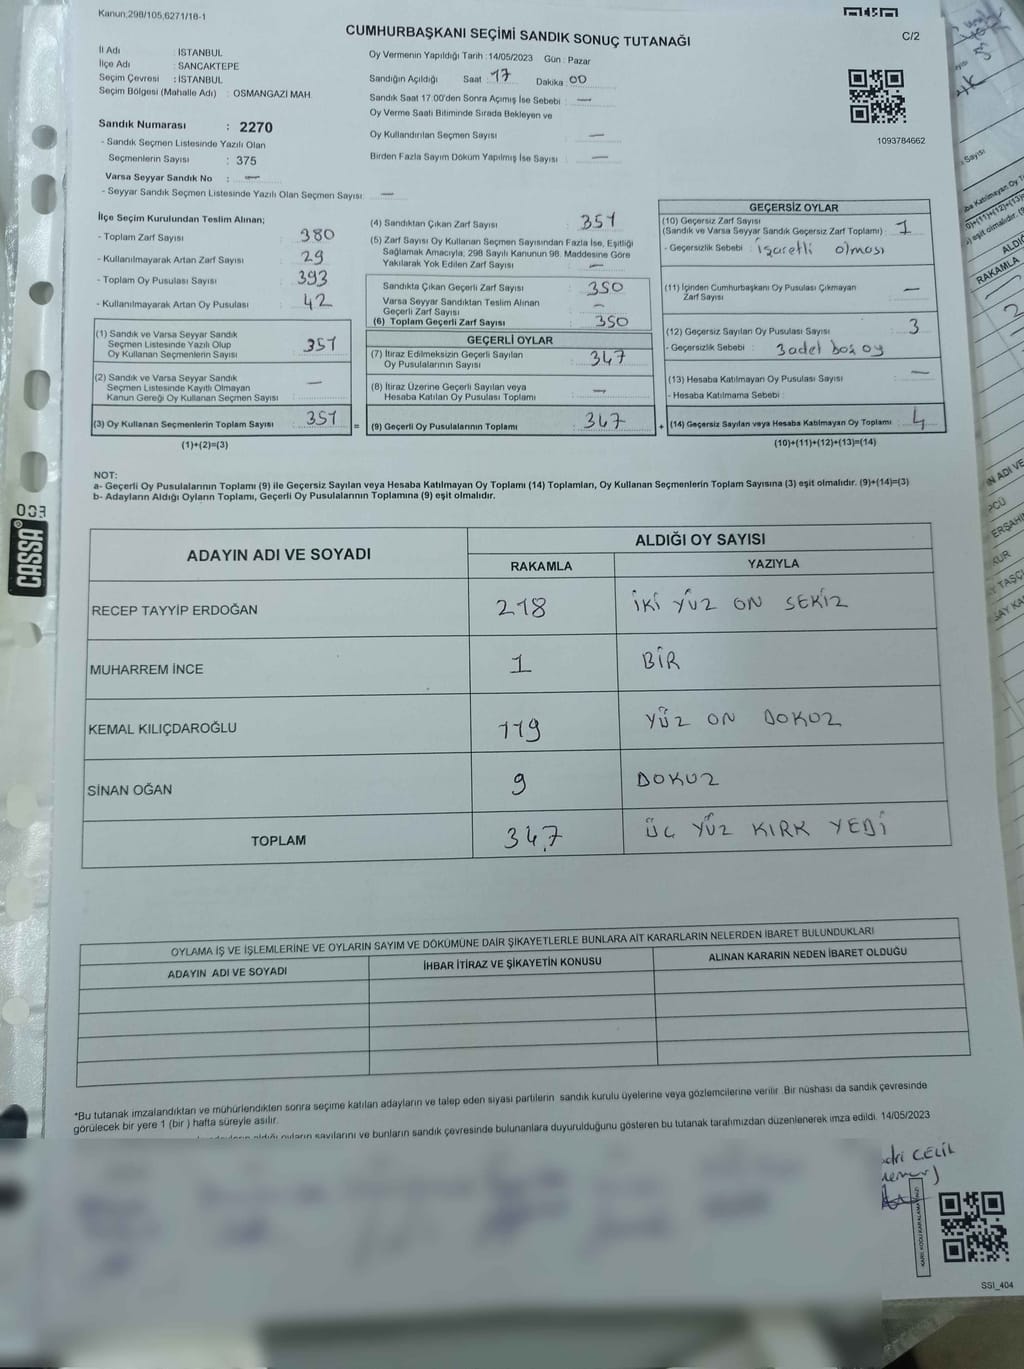 Kanun:298/105,6271/18-1
CUMHURBAŞKANI SEÇİMİ SANDIK SONUÇ TUTANAĞI
C/2
İl Adı : İSTANBUL
İlçe Adı : SANCAKTEPE
Seçim Çevresi : İSTANBUL
Seçim Bölgesi (Mahalle Adı) : OSMANGAZİ MAH.
Oy Vermenin Yapıldığı Tarih :14/05/2023 Gün : Pazar
Sandığın Açıldığı Saat : 17 Dakika : 00
Sandık Saat 17:00'den Sonra Açımış İse Sebebi : —
Oy Verme Saati Bitiminde Sırada Bekleyen ve
Oy Kullandırılan Seçmen Sayısı —
Birden Fazla Sayım Döküm Yapılmış İse Sayısı : —
1093784662
Sandık Numarası : 2270
- Sandık Seçmen Listesinde Yazılı Olan
Seçmenlerin Sayısı : 375
Varsa Seyyar Sandık No : —
- Seyyar Sandık Seçmen Listesinde Yazılı Olan Seçmen Sayısı: —
İlçe Seçim Kurulundan Teslim Alınan;
- Toplam Zarf Sayısı : 380
- Kullanılmayarak Artan Zarf Sayısı : 29
- Toplam Oy Pusulası Sayısı : 393
- Kullanılmayarak Artan Oy Pusulası : 42
(1) Sandık ve Varsa Seyyar Sandık
Seçmen Listesinde Yazılı Olup
Oy Kullanan Seçmenlerin Sayısı : 351
(2) Sandık ve Varsa Seyyar Sandık
Seçmen Listesinde Kayıtlı Olmayan
Kanun Gereği Oy Kullanan Seçmen Sayısı : —
(3) Oy Kullanan Seçmenlerin Toplam Sayısı : 351
(1)+(2)=(3)
(4) Sandıktan Çıkan Zarf Sayısı : 351
(5) Zarf Sayısı Oy Kullanan Seçmen Sayısından Fazla İse, Eşitliği
Sağlamak Amacıyla; 298 Sayılı Kanunun 98. Maddesine Göre
Yakılarak Yok Edilen Zarf Sayısı : —
Sandıkta Çıkan Geçerli Zarf Sayısı : 350
Varsa Seyyar Sandıktan Teslim Alınan
Geçerli Zarf Sayısı : —
(6) Toplam Geçerli Zarf Sayısı : 350
GEÇERLİ OYLAR
(7) İtiraz Edilmeksizin Geçerli Sayılan
Oy Pusulalarının Sayısı : 347
(8) İtiraz Üzerine Geçerli Sayılan veya
Hesaba Katılan Oy Pusulası Toplamı : —
= (9) Geçerli Oy Pusulalarının Toplamı : 347
GEÇERSİZ OYLAR
(10) Geçersiz Zarf Sayısı
(Sandık ve Varsa Seyyar Sandık Geçersiz Zarf Toplamı) : 1
- Geçersizlik Sebebi : işaretli olması
(11) İçinden Cumhurbaşkanı Oy Pusulası Çıkmayan
Zarf Sayısı : —
(12) Geçersiz Sayılan Oy Pusulası Sayısı : 3
- Geçersizlik Sebebi : 3 adet boz oy
(13) Hesaba Katılmayan Oy Pusulası Sayısı : —
- Hesaba Katılmama Sebebi :
+ (14) Geçersiz Sayılan veya Hesaba Katılmayan Oy Toplamı : 4
(10)+(11)+(12)+(13)=(14)
NOT:
a- Geçerli Oy Pusulalarının Toplamı (9) ile Geçersiz Sayılan veya Hesaba Katılmayan Oy Toplamı (14) Toplamları, Oy Kullanan Seçmenlerin Toplam Sayısına (3) eşit olmalıdır. (9)+(14)=(3)
b- Adayların Aldığı Oyların Toplamı, Geçerli Oy Pusulalarının Toplamına (9) eşit olmalıdır.
003
CASSA
ADAYIN ADI VE SOYADI ALDIĞI OY SAYISI
RAKAMLA YAZIYLA
RECEP TAYYİP ERDOĞAN 218 İKİ YÜZ ON SEKİZ
MUHARREM İNCE 1 BİR
KEMAL KILIÇDAROĞLU 119 YÜZ ON DOKUZ
SİNAN OĞAN 9 DOKUZ
TOPLAM 347 ÜÇ YÜZ KIRK YEDİ
OYLAMA İŞ VE İŞLEMLERİNE VE OYLARIN SAYIM VE DÖKÜMÜNE DAİR ŞİKAYETLERLE BUNLARA AİT KARARLARIN NELERDEN İBARET BULUNDUKLARI
ADAYIN ADI VE SOYADI İHBAR İTİRAZ VE ŞİKAYETİN KONUSU ALINAN KARARIN NEDEN İBARET OLDUĞU
*Bu tutanak imzalandıktan ve mühürlendikten sonra seçime katılan adayların ve talep eden siyasi partilerin sandık kurulu üyelerine veya gözlemcilerine verilir. Bir nüshası da sandık çevresinde
görülecek bir yere 1 (bir ) hafta süreyle asılır.
oyların sayılarını ve bunların sandık çevresinde bulunanlara duyurulduğunu gösteren bu tutanak tarafımızdan düzenlenerek imza edildi. 14/05/2023
SSI_404